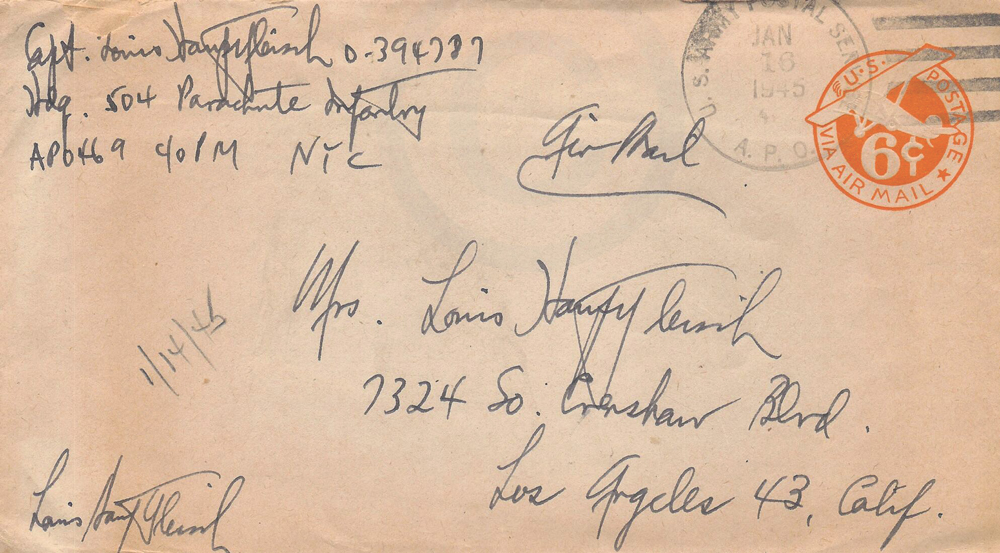 Capt. Louis Hauptfleisch O-394787
Hdq. 504 Parachute Infantry
APO 469 c/o PM NYC
Air Mail
U.S. ARMY POSTAL SERVICE
JAN
16
1945
A.P.O.
U.S. POSTAGE
6¢
VIA AIR MAIL
Mrs. Louis Hauptfleisch
7324 So. Crenshaw Blvd.
Los Angeles 43, Calif.
1/14/45
Louis Hauptfleisch